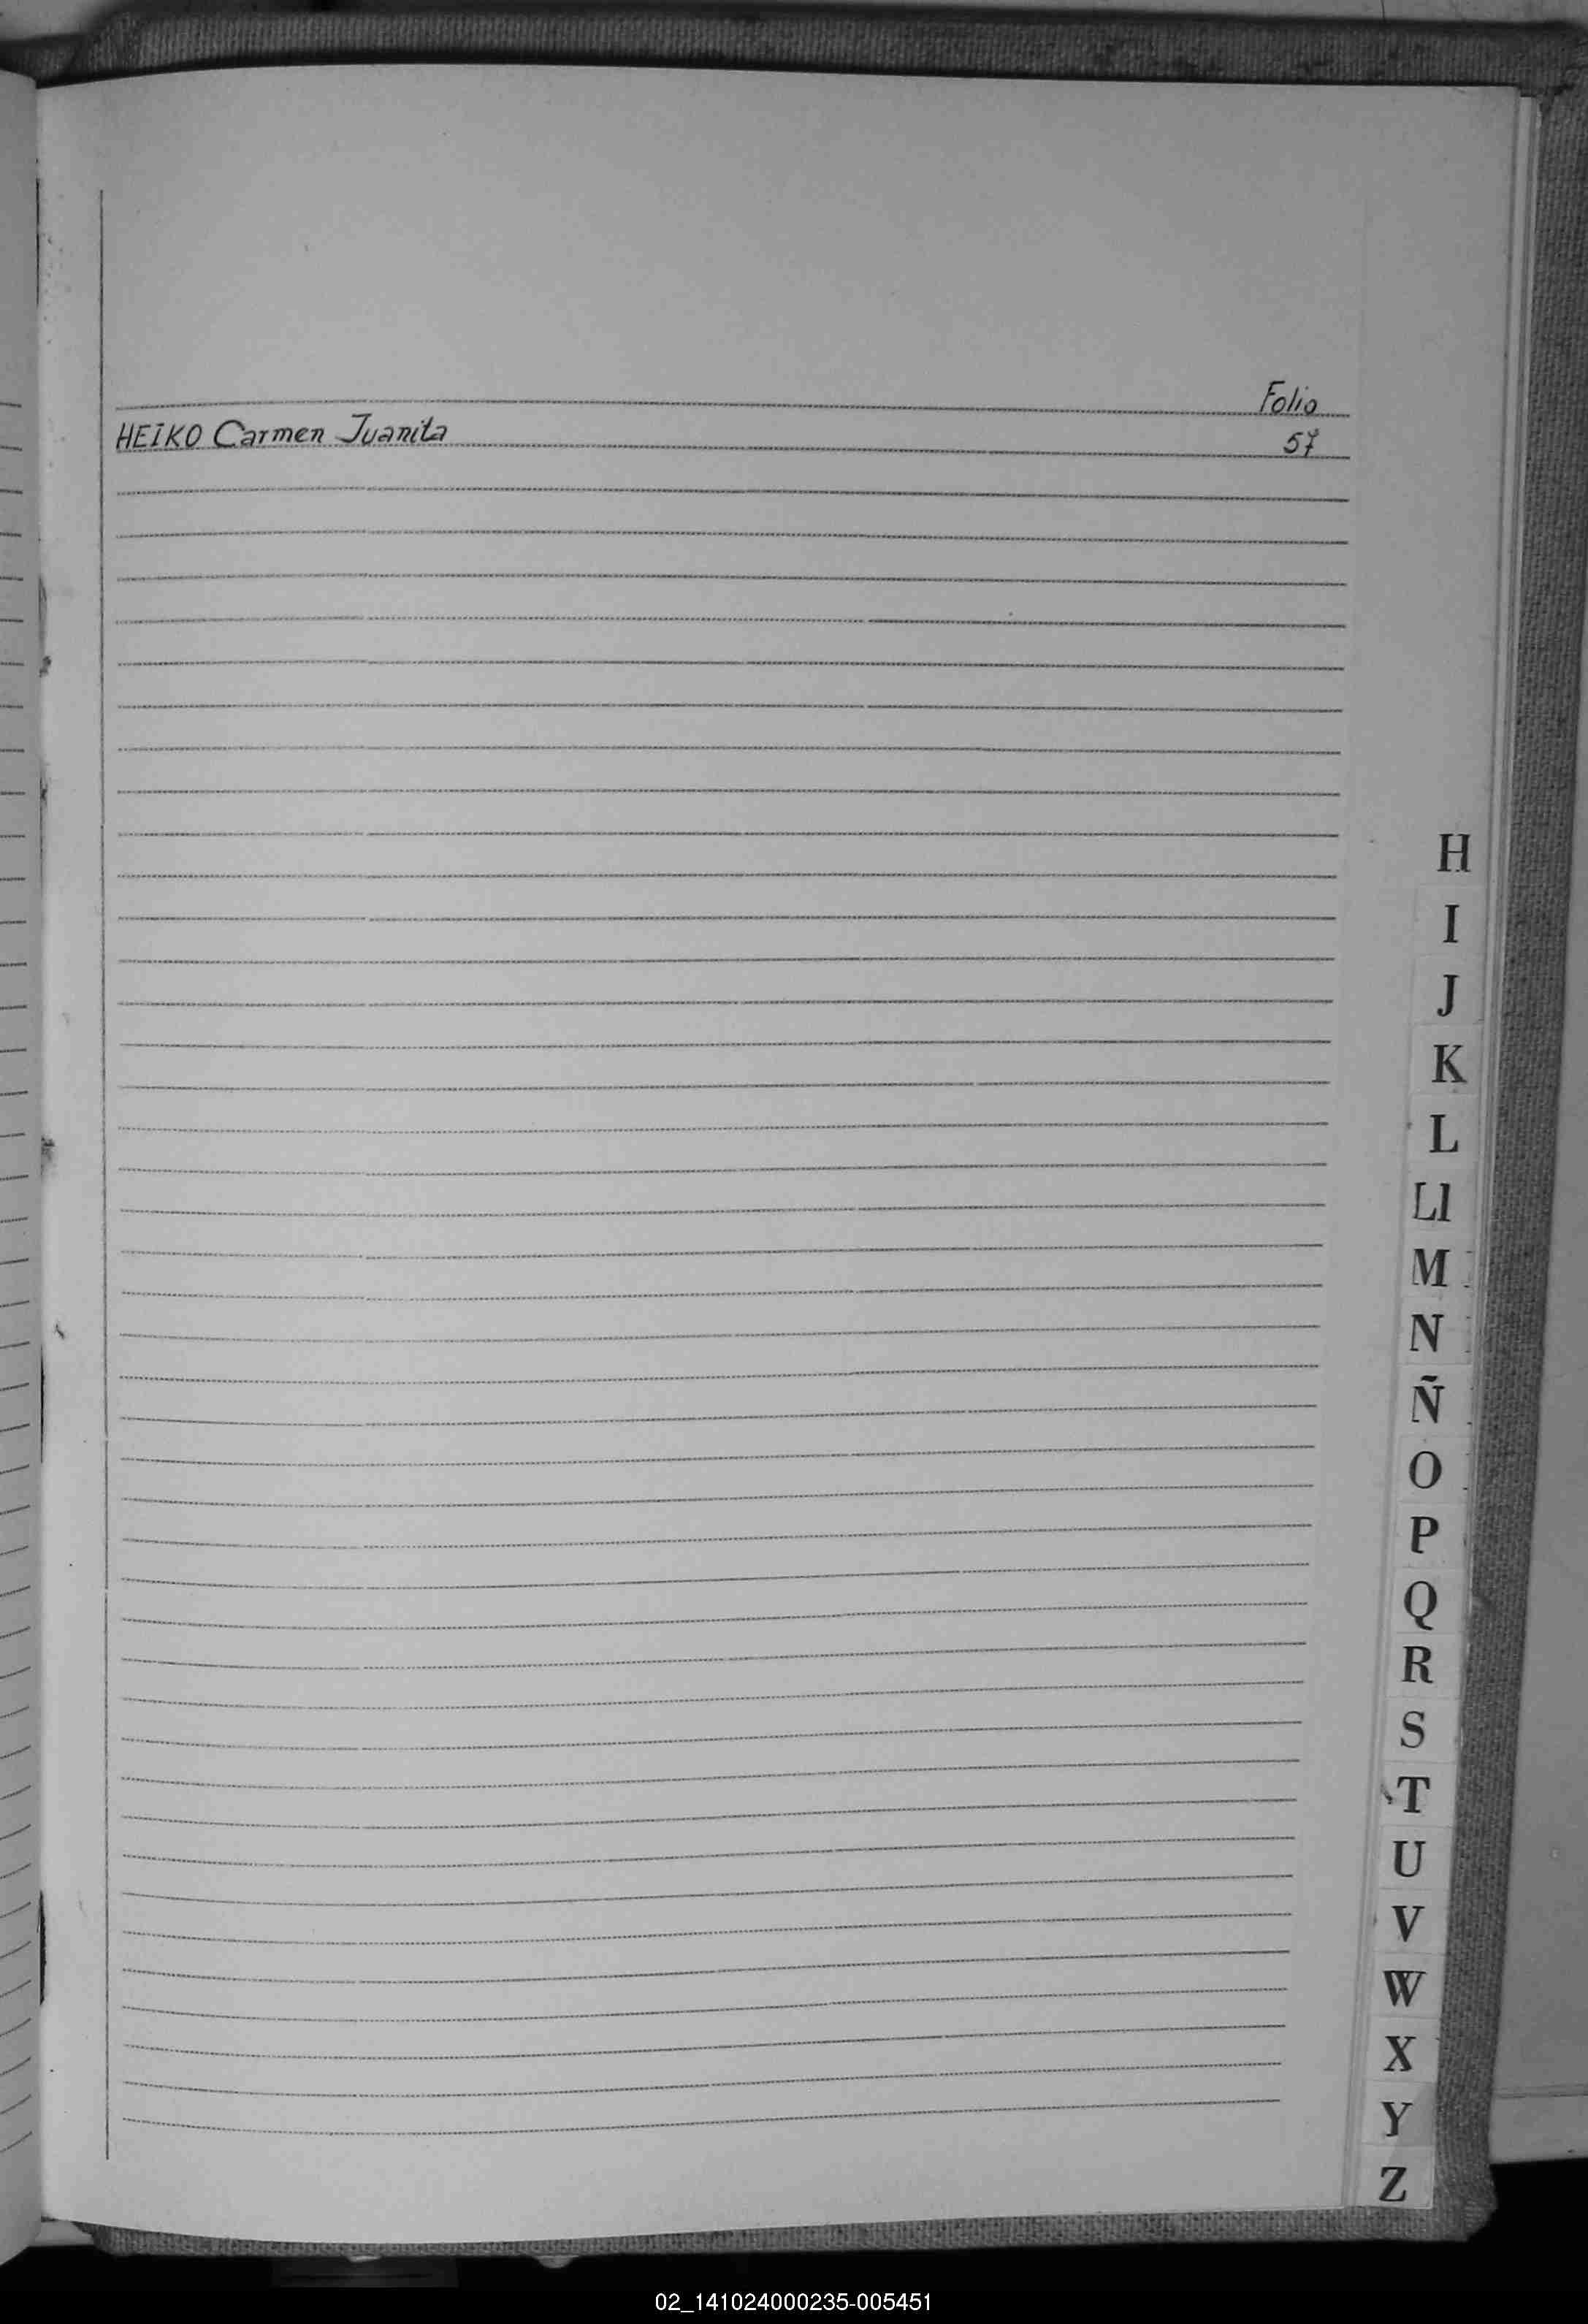 Folio
HEIKO Carmen Juanita 57
H
I
J
K
L
Ll
M
N
Ñ
O
P
Q
R
S
T
U
V
W
X
Y
Z
02_141024000235-005451